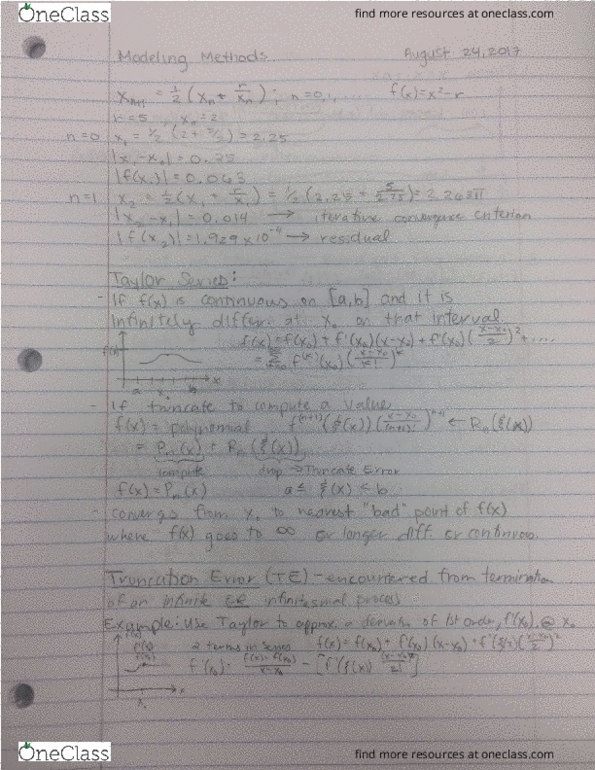 OneClass
find more resources at oneclass.com
Modeling Methods August 24, 2017
Xn+1 = 1/2 (xn + r/xn); n=0,1, f(x)=x²-r
r=5, x0=2
n=0 x1 = 1/2 (2+5/2)=2.25
|x1-x0|=0.25
|f(x1)|=0.063
n=1 x2 = 1/2(x1 + r/x1) = 1/2(2.25 + 5/2.25)=2.2361
|x2-x1|=0.014 → iterative convergence criterion
|f(x2)|=1.929×10⁻⁴ → residual
Taylor Series:
- If f(x) is continuous on [a,b] and it is
infinitely differ. at x0 on that interval
f(x)=f(x0)+f'(x0)(x-x0)+f''(x0)(x-x0/2)²+....
f(x)
= Σ f^(k)(x0)(x-x0/k!)^k
a x0 b x
- If truncate to compute a value
f(x) = polynomial f^(n+1)(ξ(x))(x-x0/(n+1)!)^n+1 ← Rn(ξ(x))
= Pn(x) + Rn(ξ(x))
compute drop → Truncate Error
f(x)=Pn(x) a ≤ ξ(x) ≤ b
- converges from x0 to nearest "bad" point of f(x)
where f(x) goes to ∞ or longer diff. or continuous.
Truncation Error (TE) - encountered from termination
of an infinite or infinitesimal process
Example: Use Taylor to approx. a derivative of 1st order, f'(x0) @ x0
2 terms in series f(x)=f(x0)+f'(x0)(x-x0)+f''(ξ(x))(x-x0/2)²
f'(x0)= f(x)-f(x0)/x-x0 - [f''(ξ(x)) (x-x0)/2!]
x0 x
OneClass
find more resources at oneclass.com